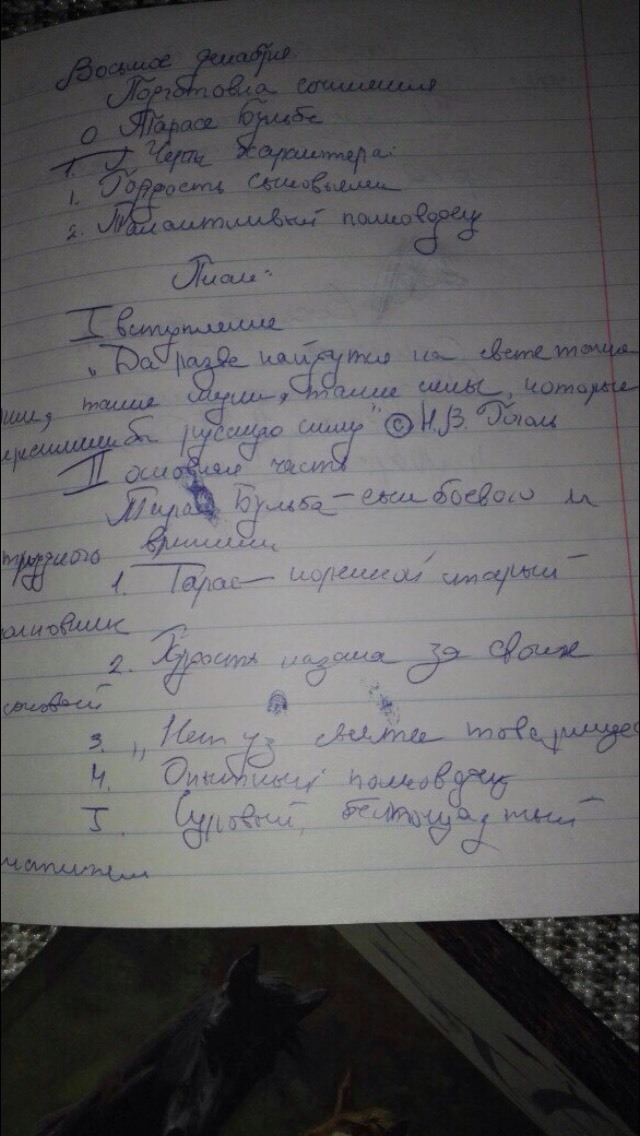 Восьмое декабря.
Подготовка сочинения
о Тарасе Бульбе
1. Черты характера:
1. Гордость сыновьями
2. Талантливый полководец
План:
I вступление
„Да разве найдутся на свете такие
огни, такие муки, такие силы, которые
пересилили бы русскую силу" © Н.В. Гоголь
II основная часть
Тарас Бульба – сын боевого и
трудного времени
1. Тарас – коренной старый
полковник
2. Гордость казака за своих
сыновей
3. „Нет уз святее товарищес
4. Опытный полководец
5. Суровый, беспощадный
мститель